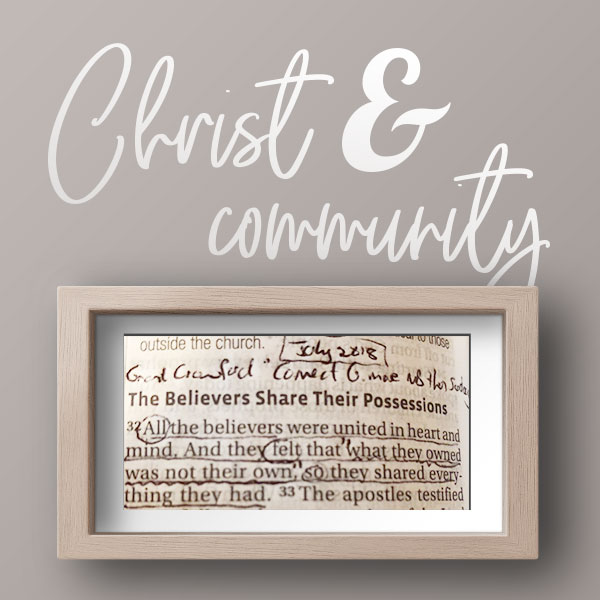 Christ &
community
outside the church.
July 2018
to those
Grant Crawford "Connect G.
The Believers Share Their Possessions
32 All the believers were united in heart and
mind. And they felt that what they owned
was not their own, so they shared every-
thing they had. 33 The apostles testified